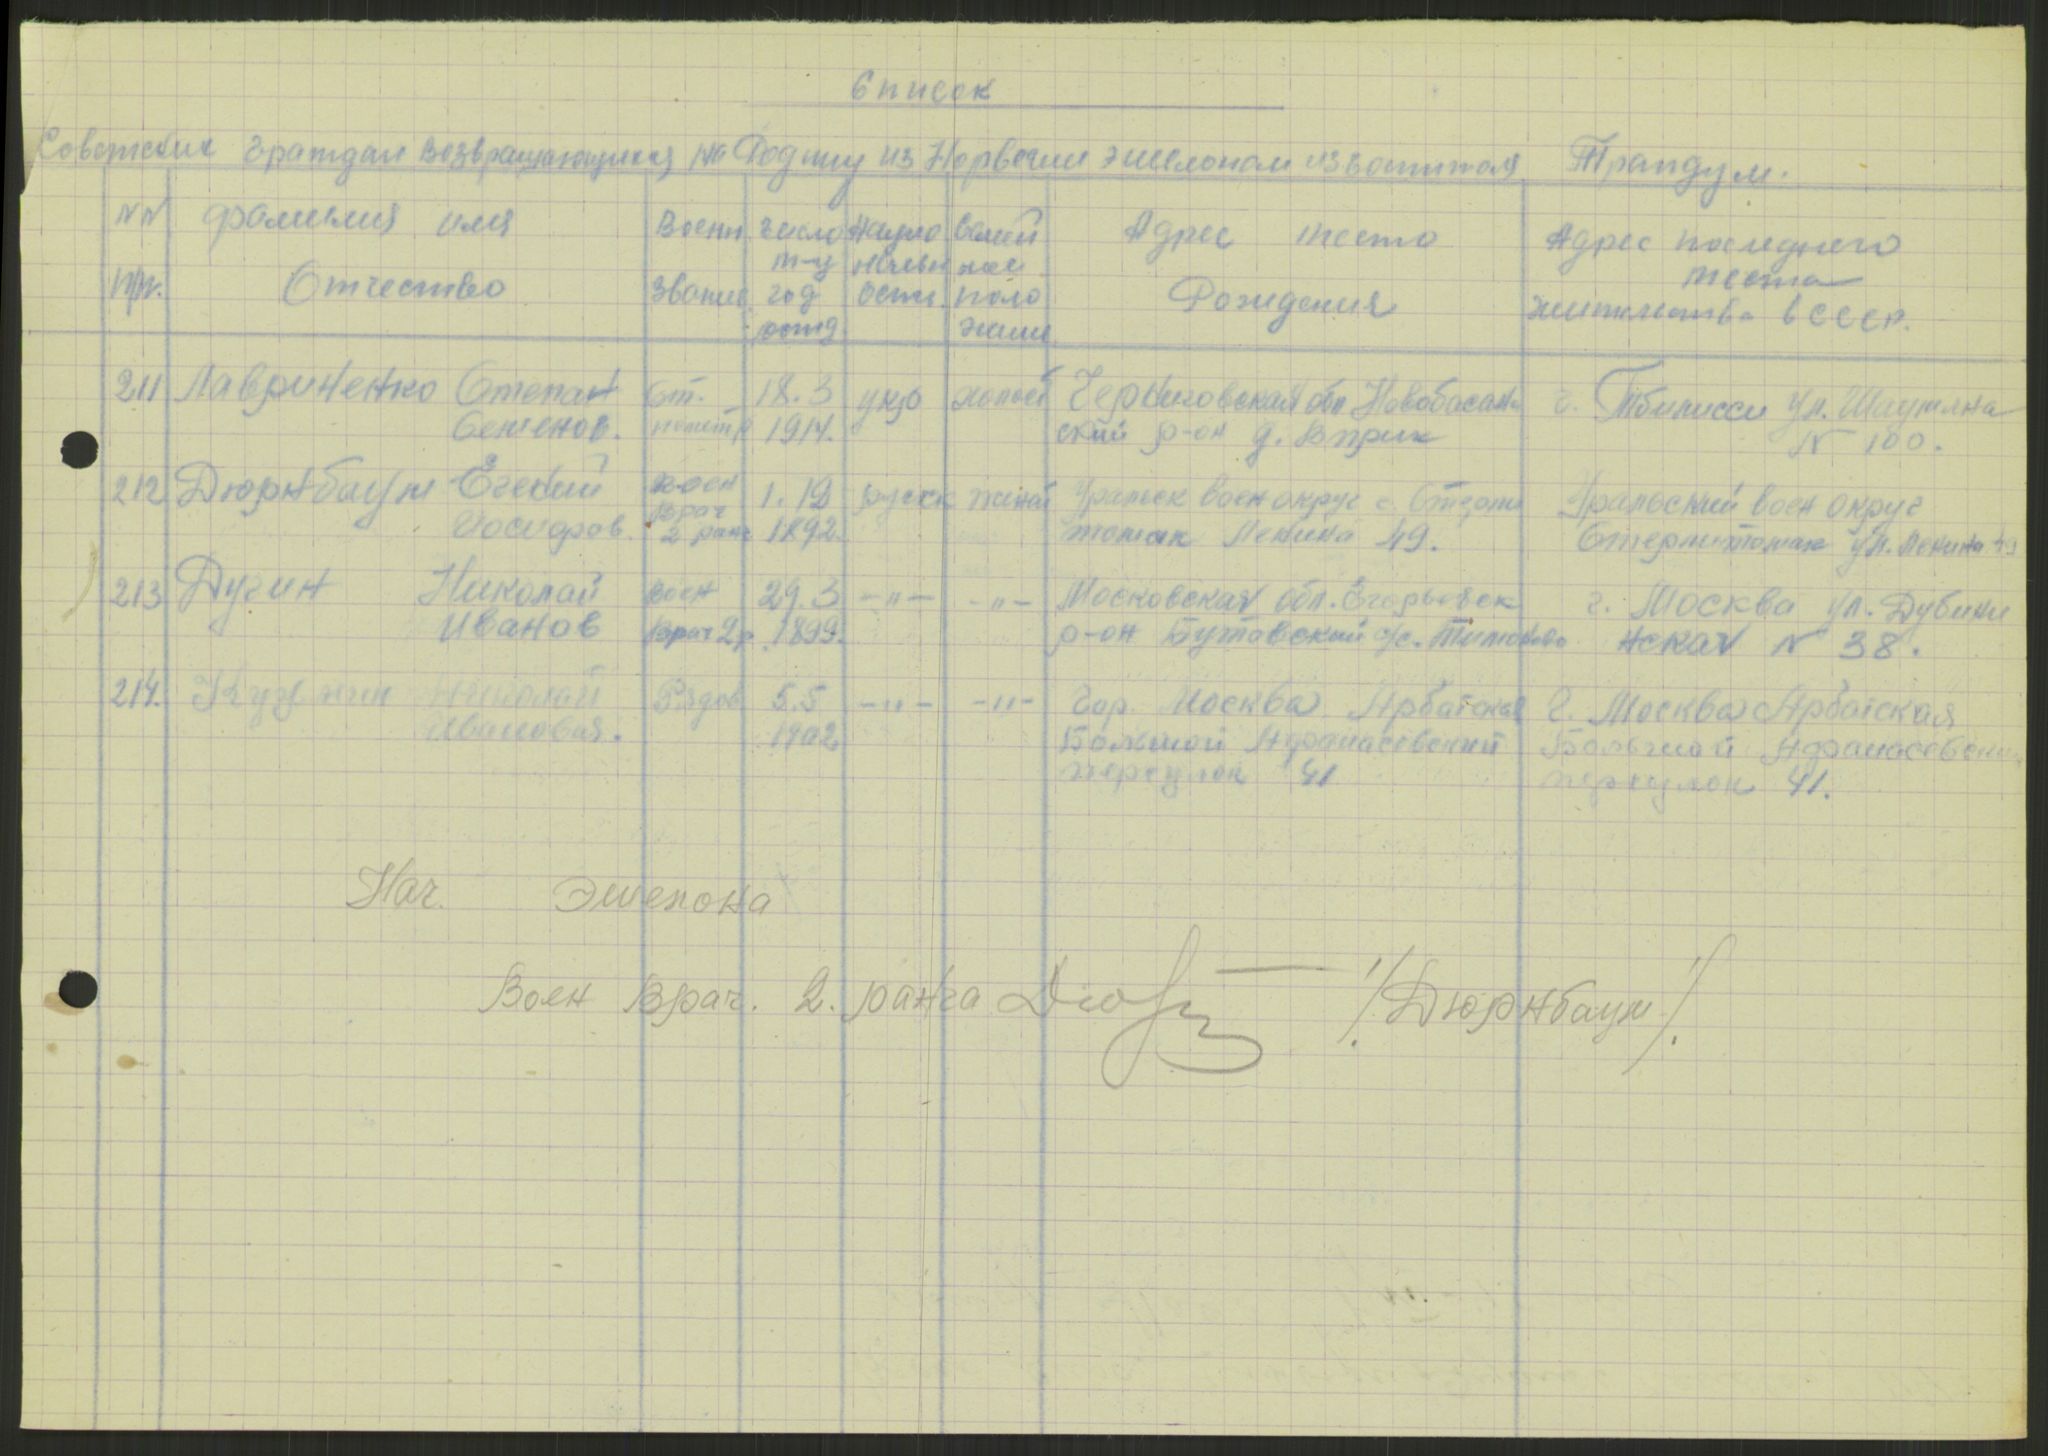 Список
Советских граждан возвращающихся на Родину из Норвегии эшелоном из Трандум.
NN Фамилия имя Воен число Нацио Семей Адрес место Адрес последнего
м-ц нальн ное места
п/п. Отчество Звание год ости. поло Рождения жительства в СССР.
рожд. жение
211 Лавриненко Степан Ст. 18.3 укр холост Черниговская обл Новобасан г. Тбилисси ул. Шаумяна
Семенов. политр 1914. ский р-он д. N 100.
212 Дюрнбаум Воен 1.12 русск женат Уральск воен округ г. Стерли Уральский воен округ
врач
Иосифов. 2 ранг 1892. томак Ленина 49. Стерлитомак ул. Ленина 49
213 Дугин Николай Воен 29.3 -"- -"- Московская обл. Егорьевск г. Москва ул. Дубини
Иванов Врач 2 р. 1899. р-он Бутовский с/с. нская N 38.
214. Кузмин Николай Рядов 5.5 -"- -"- Гор. Москва Арбатская г. Москва Арбатская
Ивановоч. 1902 Большой Афанасевский Большой Афанасевский
переулок 41 переулок 41.
Нач. эшелона
Воен Врач. 2. ранга /Дюрнбаум/